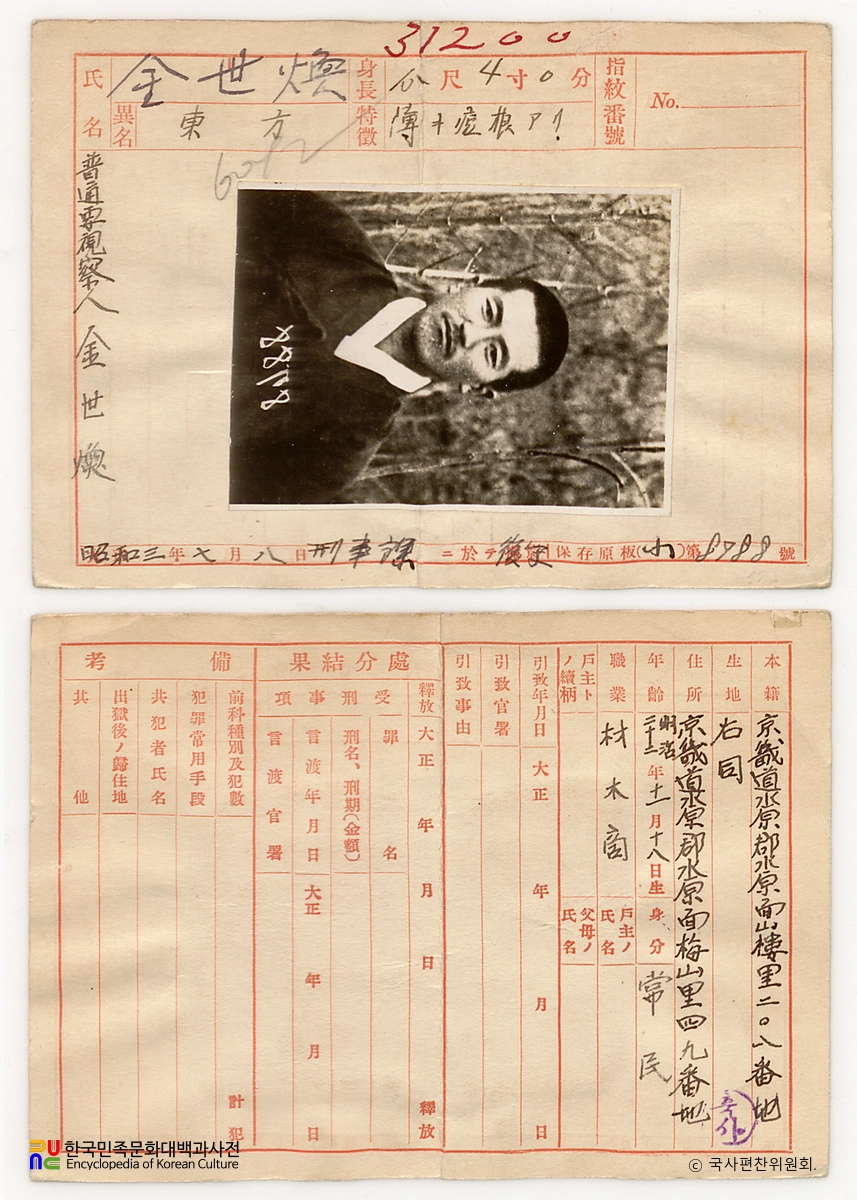 31200
氏名 金世煥
異名 東方
身長 尺4寸0分
特徴 痘根アリ
指紋番號 No.
普通要視察人 金世煥
8788
昭和三年七月八日刑事課ニ於テ 保存原板(小)第8788號
本籍 京畿道水原郡水原面山樓里二〇八番地
生地 右同
住所 京畿道水原郡水原面梅山里四九番地
年齡 明治二十二年十一月十八日生
身分 常民
職業 材木商
戸主ノ氏名
戸主トノ續柄
父母ノ氏名
引致年月日 大正 年 月 日
引致官署
引致事由
處分結果
釋放 大正 年 月 日 釋放
受刑事項
罪名
刑名、刑期(金額)
言渡年月日 大正 年 月 日
言渡官署
備考
前科種別及犯數 計 犯
犯罪常用手段
共犯者氏名
出獄後ノ歸住地
其他
한국민족문화대백과사전
Encyclopedia of Korean Culture
© 국사편찬위원회.